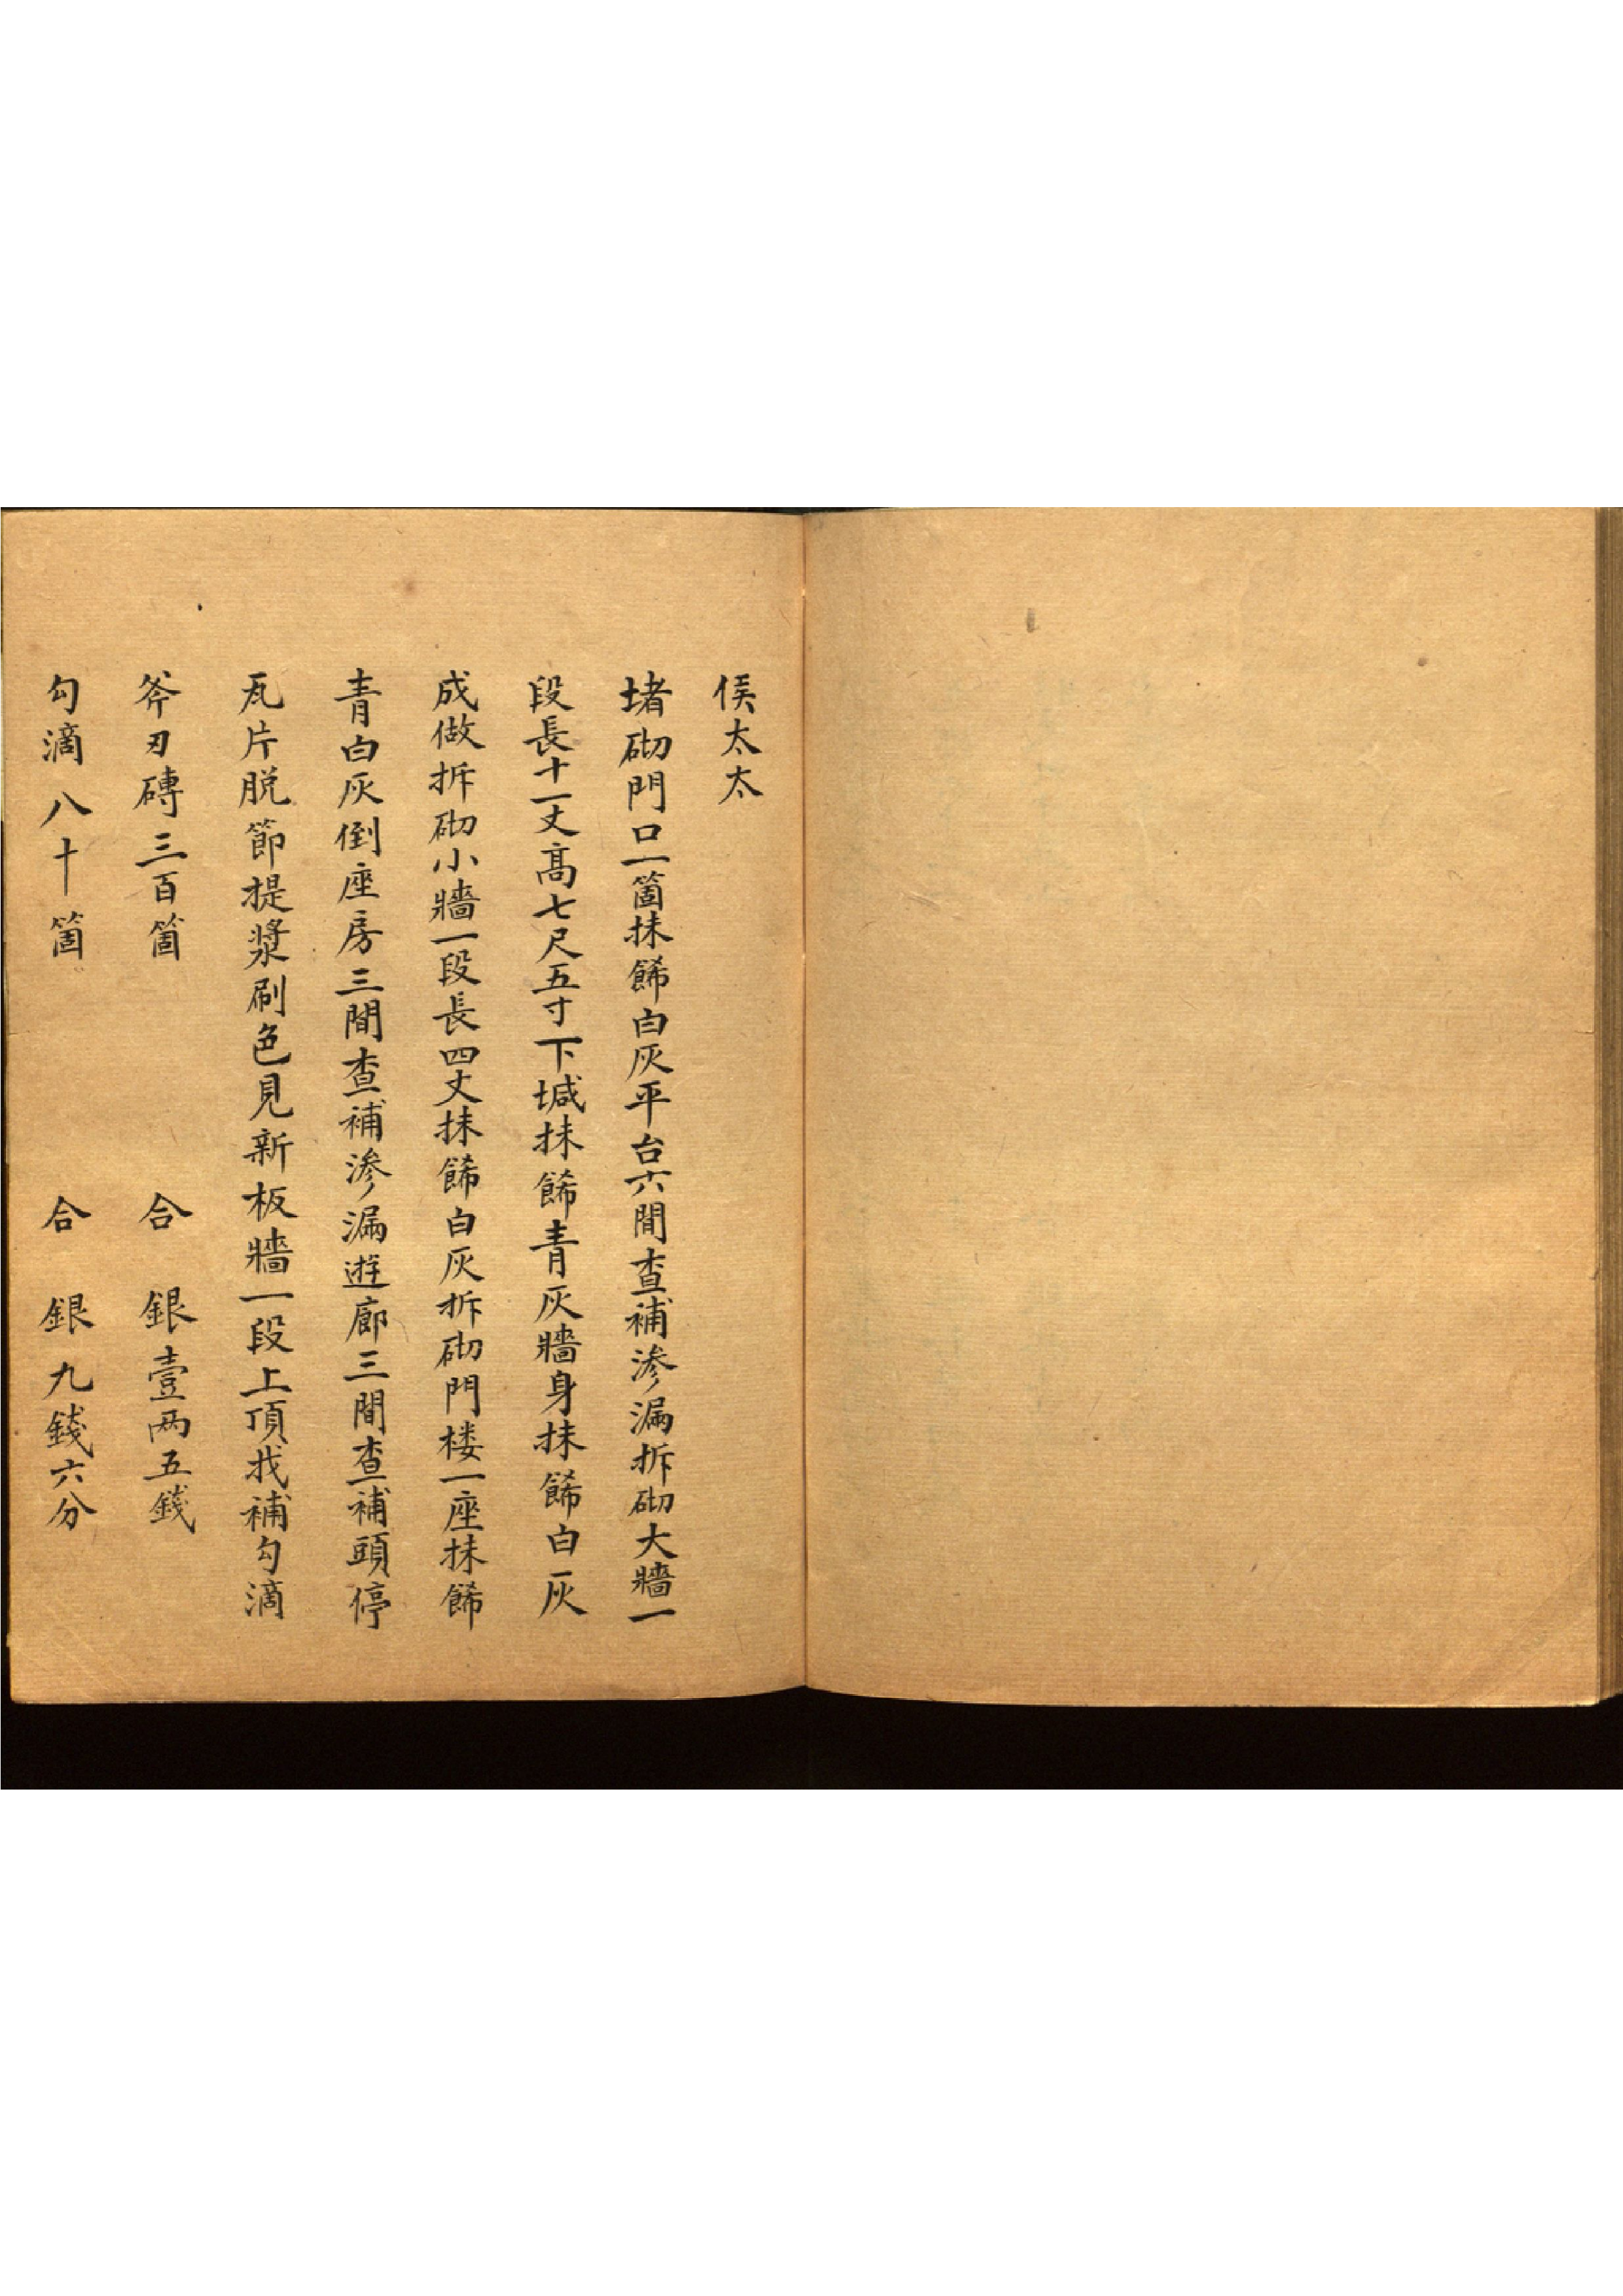 侯太太
堵砌門口一箇抹餙白灰平台六間查補渗漏拆砌大牆一
段長十一丈高七尺五寸下堿抹餙青灰牆身抹餙白灰
成做拆砌小牆一段長四丈抹餙白灰拆砌門楼一座抹餙
青白灰倒座房三間查補渗漏遊廊三間查補頭停
瓦片脱節提漿刷色見新板牆一段上頂找補勾滴
斧刃磚三百箇 合 銀壹两五錢
勾滴八十箇 合 銀九錢六分